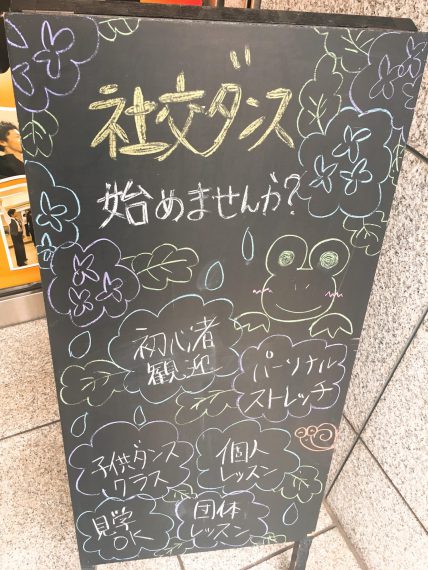 社交ダンス
始めませんか?
初心者
観迎
パーソナル
ストレッチ
子供ダンス
クラス
個人
レッスン
見学
OK
団体
レッスン